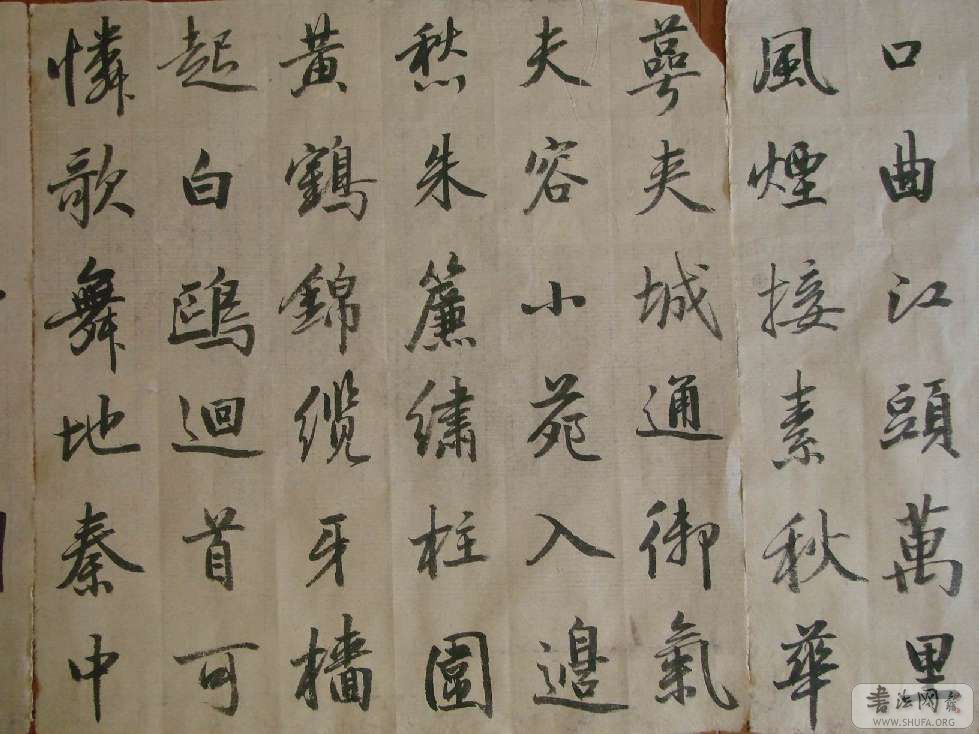 口曲江頭萬里
風煙接素秋華
萼夾城通御氣
夫容小苑入邊
愁朱簾繡柱圍
黃鶴錦纜牙檣
起白鷗迴首可
憐歌舞地秦中
書法网
WWW.SHUFA.ORG